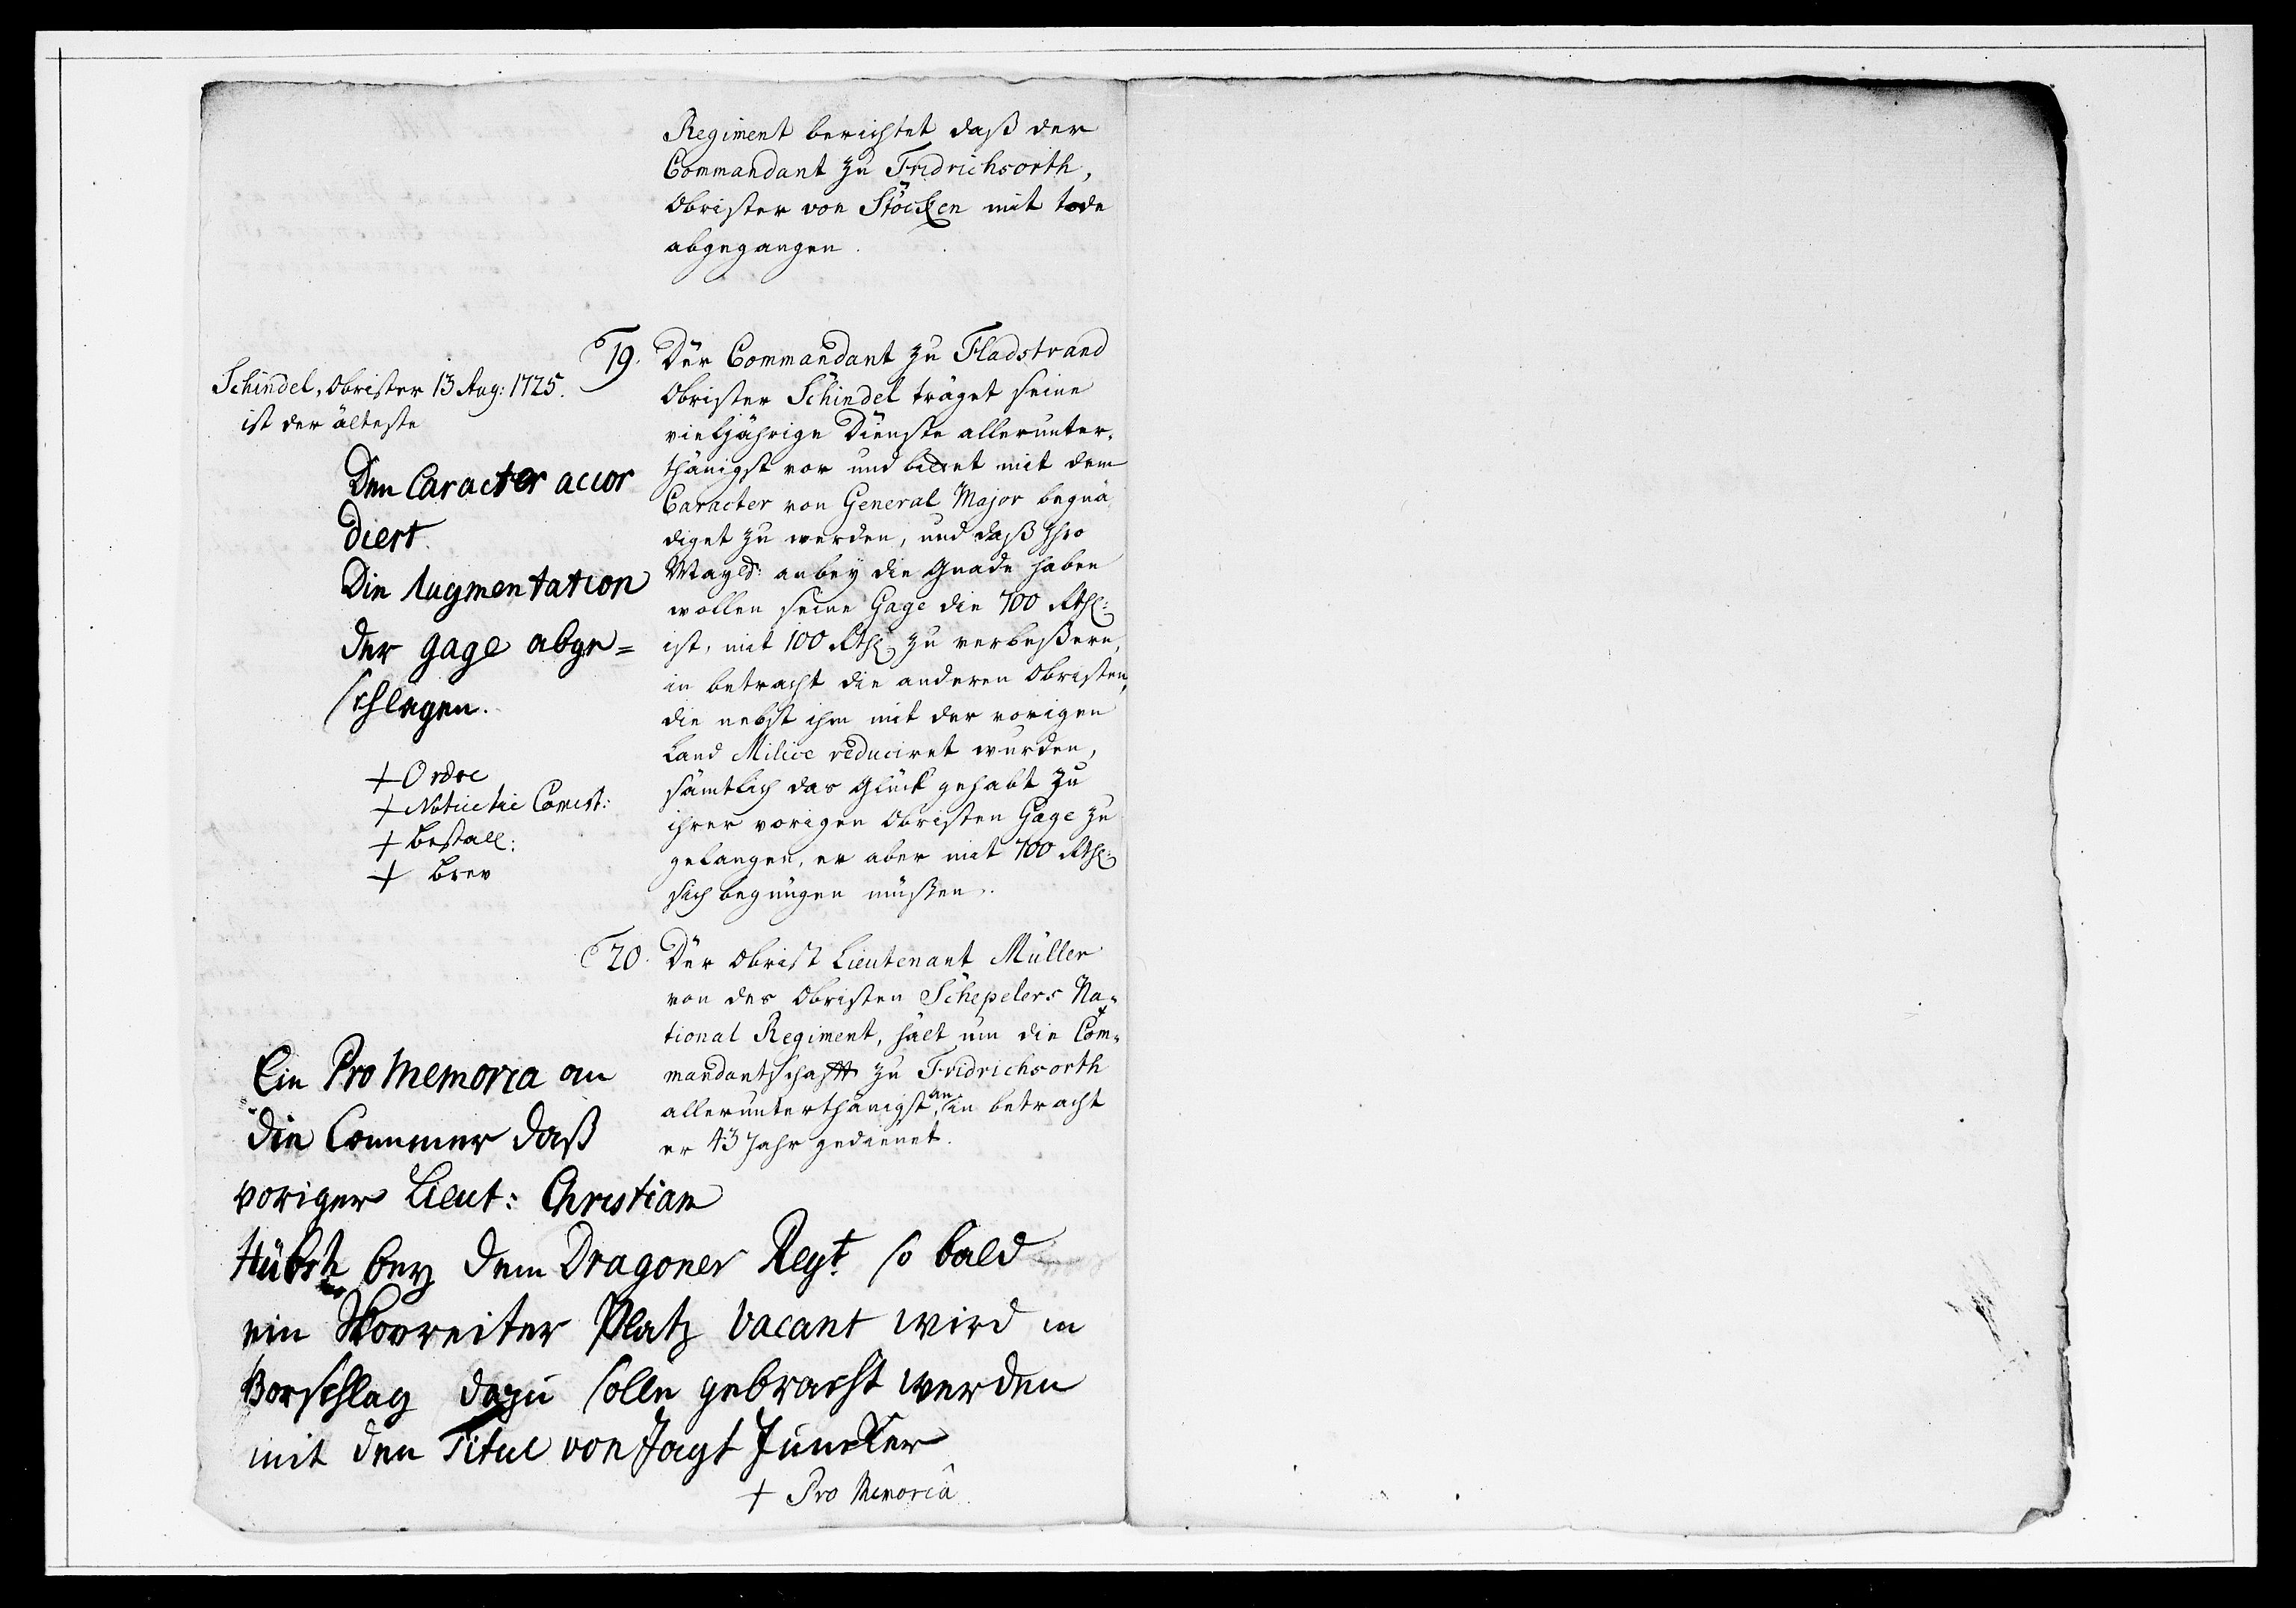 Regiment berichtet daß der
Commandant zu Fridrichsorth,
Obrister von Stöcken mit tode
abgegangen.
19. Der Commandant zu Fladstrand
Obrister Schindel träget seine
vieljährige Dienste allerunter-
thänigst vor und bittet mit dem
Caracter von General Major begnä
diget zu werden, und daß Ihro
Mayld: anbey die Gnade haben
wollen seine Gage die 700 Rthl:
ist, mit 100 Rthl: zu verbeßern,
in betracht die anderen Obristen,
die nebst ihm mit der vorigen
Land Milice reduciret wurden,
sämtlich das Glück gehabt zu
ihrer vorigen Obristen Gage zu
gelangen, er aber mit 700 Rthl:
sich begnügen müßen.
Schindel, Obrister 13 Aug: 1725.
ist der älteste
Den Caracter accor
diert.
Die Augmentation
der gage abge=
schlagen.
+ Ordre
+ Notice
+ Bestall:
+ Brev
20. Der Obrist Lieutenant Müller
von des Obristen Schepelers Na-
tional Regiment, hält um die Com-
mandantschafft zu Fridrichsorth
allerunterthänigst an, in betracht
er 43 Jahr gedienet.
Ein Pro Memoria an
die Cammer daß
voriger Lieut: Christian
Hübsch bey dem Dragoner Regt. so bald
ein Skovreiter Platz vacant wird in
Vorschlag dazu solle gebracht werden
mit den Titul von Jagt Juncker
+ Pro Memoria